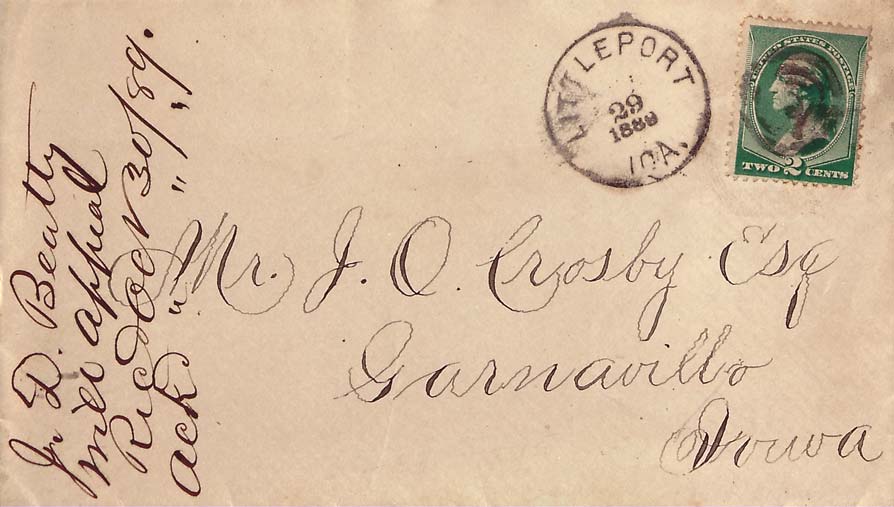 LITTLEPORT
29
1889
IOA.
UNITED STATES POSTAGE
TWO 2 CENTS
Mr. J. O. Crosby Esq
Garnavillo
Iowa
J. D. Beatty
will appeal
Rec Oct 30/89.
ack " " / "